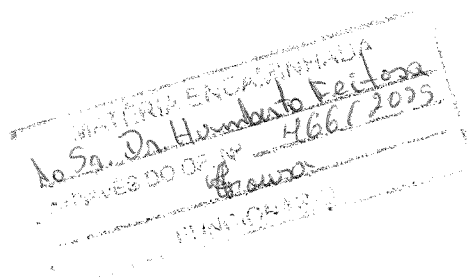 MATÉRIA ENCAMINHADA
Ao Sr. Dr. Humberto Feitosa
ATRAVÉS DO OF. Nº 466/2025
FUNCIONÁRIO